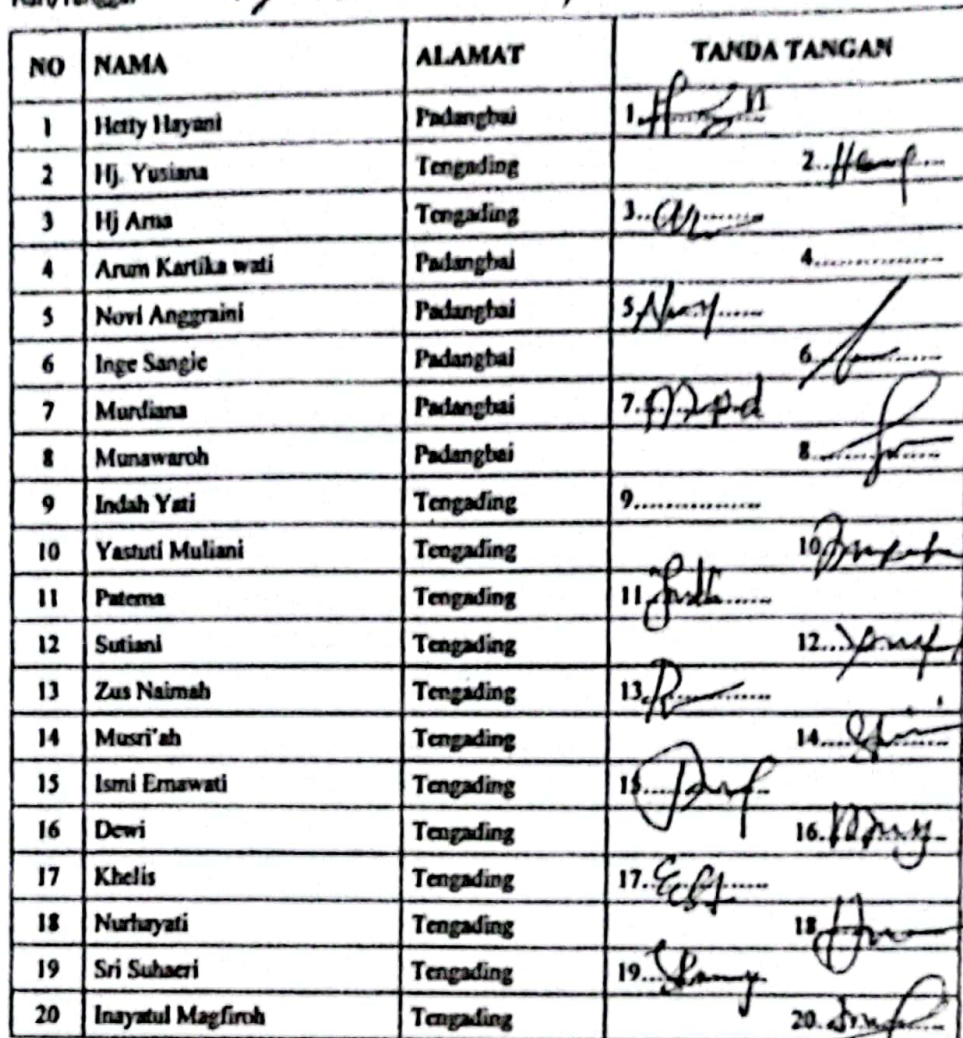 NO NAMA ALAMAT TANDA TANGAN
1 Hetty Hayani Padangbai 1.
2 Hj. Yusiana Tengading 2.
3 Hj Arna Tengading 3.
4 Arum Kartika wati Padangbai 4.
5 Novi Anggraini Padangbai 5
6 Inge Sangie Padangbai 6
7 Murdiana Padangbai 7.
8 Munawaroh Padangbai 8
9 Indah Yati Tengading 9.
10 Yastuti Muliani Tengading 10
11 Patema Tengading 11
12 Sutiani Tengading 12.
13 Zus Naimah Tengading 13.
14 Musri'ah Tengading 14.
15 Ismi Ernawati Tengading 15.
16 Dewi Tengading 16.
17 Khelis Tengading 17.
18 Nurhayati Tengading 18
19 Sri Suhaeri Tengading 19.
20 Inayatul Magfiroh Tengading 20.